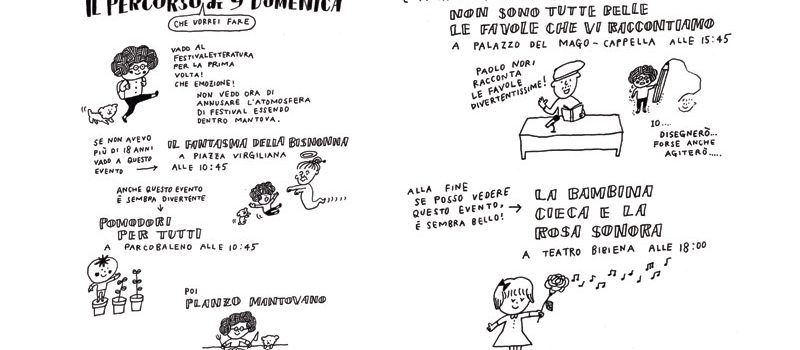 IL PERCORSO di 9 DOMENICA
(CHE VORREI FARE)
VADO AL
FESTIVALETTERATURA
PER LA PRIMA
VOLTA!
CHE EMOZIONE!
NON VEDO ORA DI
ANNUSARE L'ATOMOSFERA
DI FESTIVAL ESSENDO
DENTRO MANTOVA.
SE NON AVEVO
PIÙ DI 18 ANNI
VADO A QUESTO
EVENTO →
IL FANTASMA DELLA BISNONNA
A PIAZZA VIRGILIANA
ALLE 10:45
ANCHE QUESTO EVENTO
È SEMBRA DIVERTENTE
POMODORI
PER TUTTI
A PARCOBALENO ALLE 10:45
POI
PLANZO MANTOVANO
NON SONO TUTTE BELLE
LE FAVOLE CHE VI RACCONTIAMO
A PALAZZO DEL MAGO-CAPPELLA ALLE 15:45
PAOLO NORI
RACCONTA
LE FAVOLE
DIVERTENTISSIME!
IO....
DISEGNERÒ...
FORSE ANCHE
AGITERÒ.....
ALLA FINE
SE POSSO VEDERE
QUESTO EVENTO, →
È SEMBRA BELLO!
LA BAMBINA
CIECA E LA
ROSA SONORA
A TEATRO BIBIENA ALLE 18:00